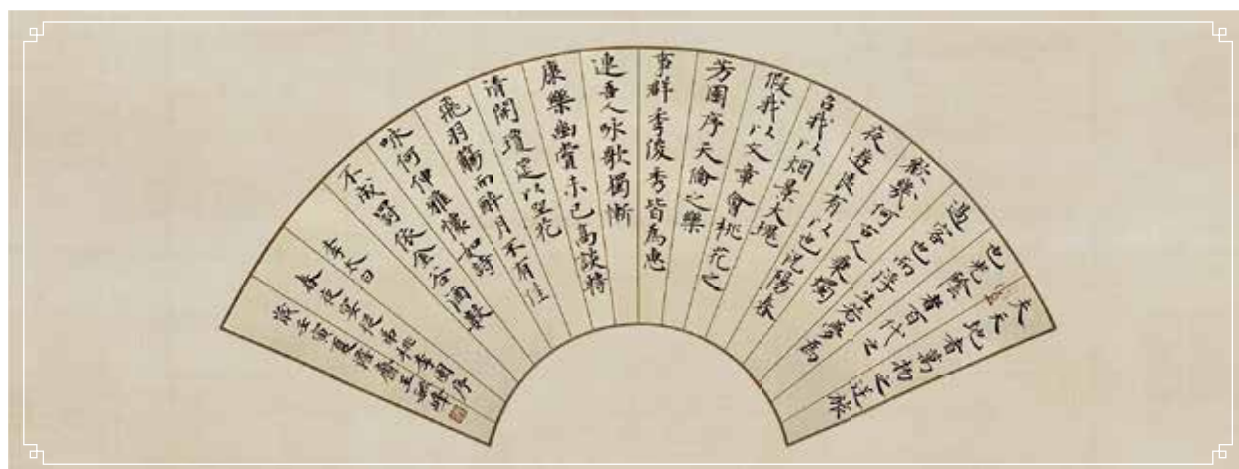 夫天地者萬物之逆旅
也光陰者百代之
過客也而浮生若夢為
歡幾何古人秉燭
夜遊良有以也況陽春
召我以烟景大塊
假我以文章會桃花之
芳園序天倫之樂
事群季俊秀皆為惠
連吾人咏歌獨慚
康樂幽賞未已高談轉
清開瓊筵以坐花
飛羽觴而醉月不有佳
咏何伸雅懷如詩
不成罰依金谷酒數
李太白
春夜宴從弟桃李園序
歲壬寅夏